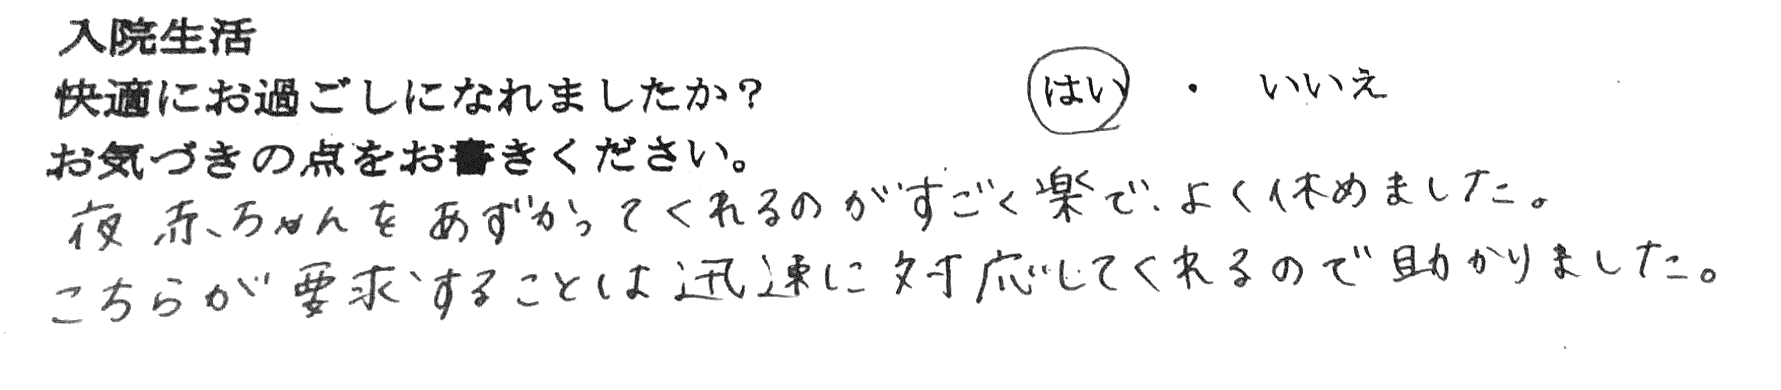 入院生活
快適にお過ごしになれましたか? はい ・ いいえ
お気づきの点をお書きください。
夜 赤ちゃんをあずかってくれるのがすごく楽で、よく休めました。
こちらが要求することは迅速に対応してくれるので助かりました。